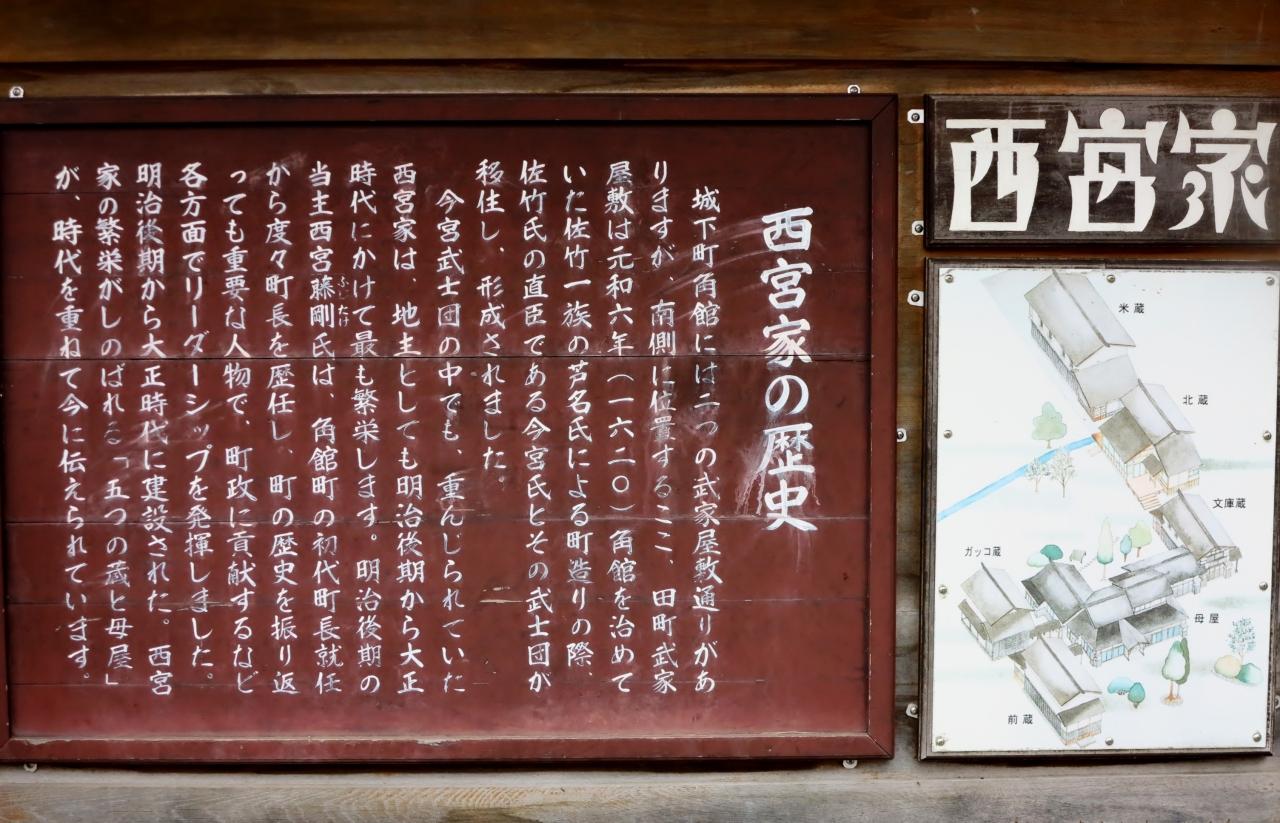 西宮家の歴史
城下町角館には二つの武家屋敷通りがあ
りますが、南側に位置するここ、田町武家
屋敷は元和六年（一六二〇）角館を治めて
いた佐竹一族の芦名氏による町造りの際、
佐竹氏の直臣である今宮氏とその武士団が
移住し、形成されました。
今宮武士団の中でも、重んじられていた
西宮家は、地主としても明治後期から大正
時代にかけて最も繁栄します。明治後期の
当主西宮藤剛氏は、角館町の初代町長就任
ふじたけ
から度々町長を歴任し、町の歴史を振り返
っても重要な人物で、町政に貢献するなど
各方面でリーダーシップを発揮しました。
明治後期から大正時代に建設された。西宮
家の繁栄がしのばれる「五つの蔵と母屋」
が、時代を重ねて今に伝えられています。
西宮家
米蔵
北蔵
文庫蔵
ガッコ蔵
母屋
前蔵